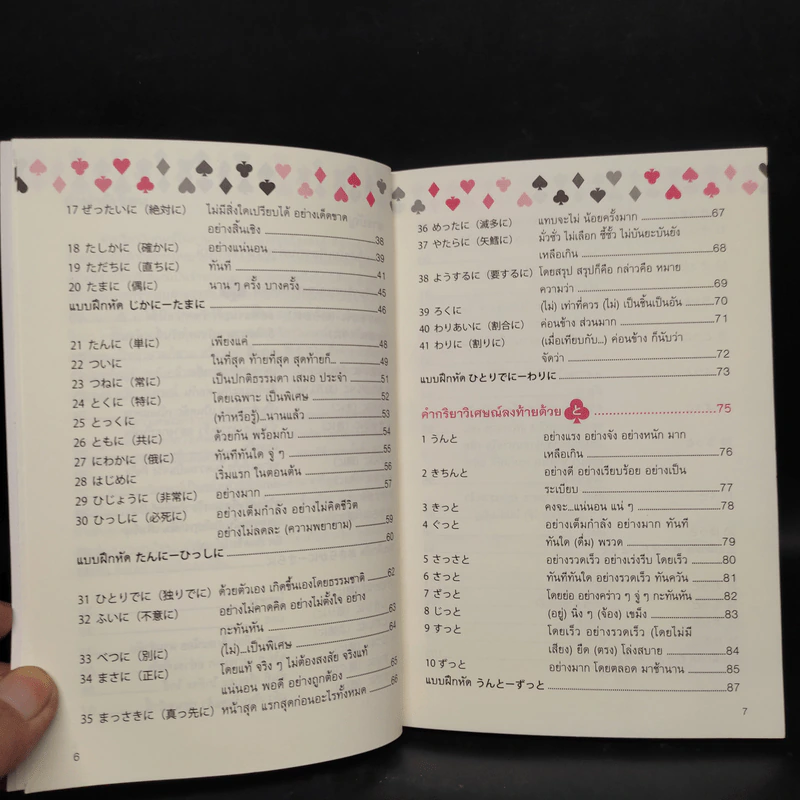 17 ぜったいに（絶対に） ไม่มีสิ่งใดเปรียบได้ อย่างเด็ดขาด
อย่างสิ้นเชิง 38
18 たしかに（確かに） อย่างแน่นอน 39
19 ただちに（直ちに） ทันที 41
20 たまに（偶に） นาน ๆ ครั้ง บางครั้ง 45
แบบฝึกหัด じかにーたまに 46
21 たんに（単に） เพียงแค่ 48
22 ついに ในที่สุด ท้ายที่สุด สุดท้ายก็... 49
23 つねに（常に） เป็นปกติธรรมดา เสมอ ประจำ 51
24 とくに（特に） โดยเฉพาะ เป็นพิเศษ 52
25 とっくに (ทำหรือรู้)...นานแล้ว 53
26 ともに（共に） ด้วยกัน พร้อมกับ 54
27 にわかに（俄に） ทันทีทันใด จู่ ๆ 55
28 はじめに เริ่มแรก ในตอนต้น 56
29 ひじょうに（非常に） อย่างมาก 57
30 ひっしに（必死に） อย่างเต็มกำลัง อย่างไม่คิดชีวิต
อย่างไม่ลดละ (ความพยายาม) 59
แบบฝึกหัด たんにーひっしに 60
31 ひとりでに（独りでに） ด้วยตัวเอง เกิดขึ้นเองโดยธรรมชาติ 62
32 ふいに（不意に） อย่างไม่คาดคิด อย่างไม่ตั้งใจ อย่าง
กะทันหัน 63
33 べつに（別に） (ไม่)...เป็นพิเศษ 64
34 まさに（正に） โดยแท้ จริง ๆ ไม่ต้องสงสัย จริงแท้
แน่นอน พอดี อย่างถูกต้อง 65
35 まっさきに（真っ先に） หน้าสุด แรกสุดก่อนอะไรทั้งหมด 66
6
36 めったに（滅多に） แทบจะไม่ น้อยครั้งมาก 67
37 やたらに（矢鱈に） มั่วซั่ว ไม่เลือก ซี้ซั้ว ไม่บันยะบันยัง
เหลือเกิน 68
38 ようするに（要するに） โดยสรุป สรุปก็คือ กล่าวคือ หมาย
ความว่า 69
39 ろくに (ไม่) เท่าที่ควร (ไม่) เป็นชิ้นเป็นอัน 70
40 わりあいに（割合に） ค่อนข้าง ส่วนมาก 71
41 わりに（割りに） (เมื่อเทียบกับ...) ค่อนข้าง ก็นับว่า
จัดว่า 72
แบบฝึกหัด ひとりでにーわりに 73
คำกริยาวิเศษณ์ลงท้ายด้วย と 75
1 うんと อย่างแรง อย่างจัง อย่างหนัก มาก
เหลือเกิน 76
2 きちんと อย่างดี อย่างเรียบร้อย อย่างเป็น
ระเบียบ 77
3 きっと คงจะ...แน่นอน แน่ ๆ 78
4 ぐっと อย่างเต็มกำลัง อย่างมาก ทันที
ทันใด (ดื่ม) พรวด 79
5 さっさと อย่างรวดเร็ว อย่างเร่งรีบ โดยเร็ว 80
6 さっと ทันทีทันใด อย่างรวดเร็ว ทันควัน 81
7 ざっと โดยย่อ อย่างคร่าว ๆ จู่ ๆ กะทันหัน 82
8 じっと (อยู่) นิ่ง ๆ (จ้อง) เขม็ง 83
9 すっと โดยเร็ว อย่างรวดเร็ว (โดยไม่มี
เสียง) ยืด (ตรง) โล่งสบาย 84
10 ずっと อย่างมาก โดยตลอด มาช้านาน 85
แบบฝึกหัด うんとーずっと 87
7